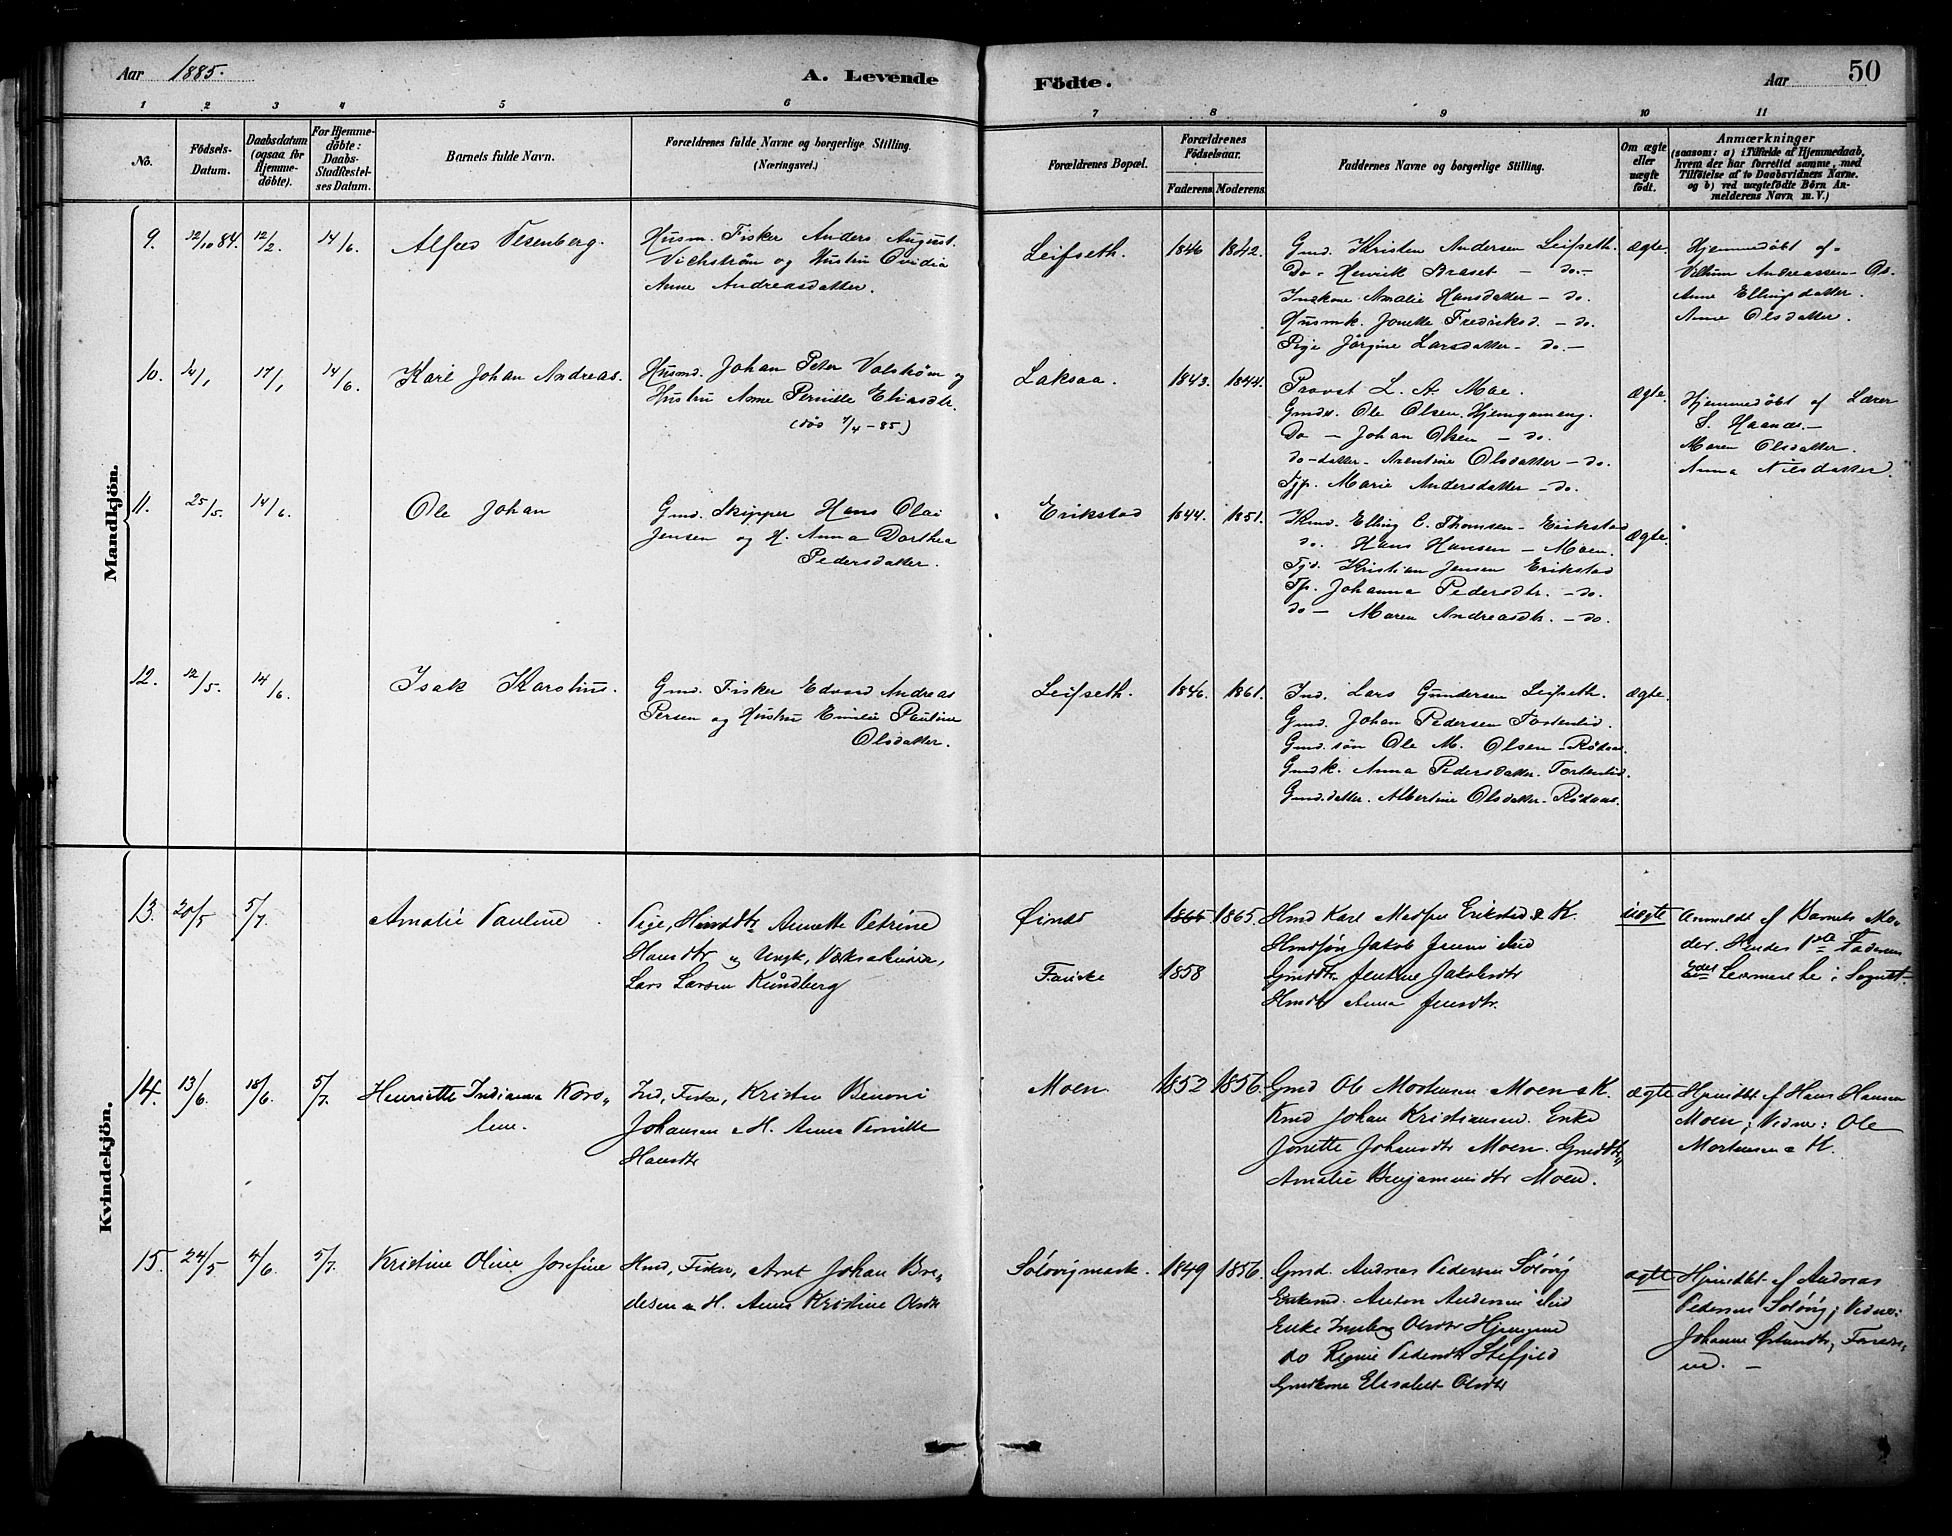 Aar 1885. A. Levende
Födte. Aar 50
1 2 3 4 5 6
7 8 9 10 11
No.
Födsels-
Datum.
Daabsdatum
(ogsaa for
Hjemme-
döbte).
For Hjemme-
döbte:
Daabs-
Stadfæstel-
ses Datum.
Barnets fulde Navn.
Forældrenes fulde Navne og borgerlige Stilling.
(Næringsvei.)
Forældrenes Bopæl.
Forældrenes
Födselsaar.
Faderens Moderens
Faddernes Navne og borgerlige Stilling.
Om ægte
eller
uægte
födt.
Anmærkninger
(saasom: a) i Tilfælde af Hjemmedaab,
hvem der har forrettet samme, med
Tilföielse af to Daabsvidners Navne.
og b) ved uægtefödte Börn An-
melderens Navn m. V.)
Mandkjön.
9. 12/10 84. 12/2. 14/6. Alfred Vesenberg.
Husm. Fisker Anders August
Vichström og Hustru Ovidia
Anne Andreasdatter.
Leifseth. 1846 1842.
Gmd. Kristen Andersen Leifseth.
Do - Henrik Braset - do.-
Indkone Amalie Hansdatter - do.
Husmk. Jonette Fredriksd. - do.
Pige Jörgine Larsdatter - do.-
ægte.
Hjemmedöbt af
Andreassen
Anne Ellingsdatter.
Anne Olsdatter.
10. 17/1 14/6. Karl Johan Andreas.
Husmd. Johan Peter Valström og
Hustru Anne Pernille Eliasdtr.
(död 7/4-85)
Laksaa. 1843. 1844.
Provst L. A. Moe.
Gmdr. Ole Olsen Hjemgameng.
Do - Johan Olsen - do.
do-datter. Arentine Olsdatter - do.
Tjp. Marie Andersdatter - do.
ægte.
Hjemmedöbt af Lærer
S. Haanes.-
Maren Olsdatter.
Anna Nilsdatter.
11. 25/5. 14/6. Ole Johan
Gmd. Skipper Hans Olai
Jensen og H. Anna Dorthea
Pedersdatter.
Erikstad 1844. 1851.
Kmd. Elling C. Thomsen - Erikstad
do. Hans Hansen - Moen.
Tjd. Kristian Jensen Erikstad
Tp. Johanna Pedersdtr. - do.
do - Maren Andreasdtr. - do.
ægte.
12. 12/5. 14/6. Isak Karstius.
Gmd. Fisker Edvard Andreas
Persen og Hustru Emilie Pauline
Olsdatter.
Leifseth. 1846. 1861.
Ind. Lars Gundersen Leifseth.
Gmd. Johan Pedersen Tortenlid.
Gmd.sön Ole M. Olsen - Rödaas.
Gmdk. Anna Pedersdatter. Tortenlid.
Gmd.datter. Albertine Olsdatter. Rödaas.
ægte.
Kvindekjön.
13. 20/5 5/7. Amalie Pauline
Pige, Hmdtr Annette Petrine
Hansdtr og Ungk,
Lars Larsen Kundberg
Öines 1865 1865.
Fauske 1858
Hmd Karl Erikstad & K.
Hmdsön Jakob Jensen
Gmddtr Jentine Jakobsdtr
Hmdtr Anna Jensdtr.
uægte
Anmeldt af Barnets Mo-
der. Hendes 1ste Faderens
2det Leiermaal i Sognet.
14. 13/6. 18/6. 5/7. Henriette Indianna Karo-
line.
Ind, Fisker, Kristen Benoni
Johansen & H. Anna Pernille
Hansdtr
Moen 1852 1856.
Gmd Ole Mortensen Moen & K.
Kmd Johan Kristiansen. Enke
Jonette Johansdtr Moen. Gmddtr,
Amalie Benjaminsdtr Moen.
ægte
Hjmdöbt af Hans Hansen
Moen; Vidner: Ole
Mortensen & H.
15. 24/5 4/6. 5/7. Kristine Oline Josefine
Hmd, Fisker, Arnt Johan Bre-
desen & H. Anne Kristine Olsdtr
Solövigmark. 1849 1856.
Gmd. Andreas Pedersen Solövig
Anton Andersen
Enke Ingeborg Olsdtr
do Regine Pedersdtr Stefjeld
Gmdkone Elisabet Olsdtr
ægte
Hjmdöbt af Andreas
Pedersen Solövig; Vidner:
Johanne